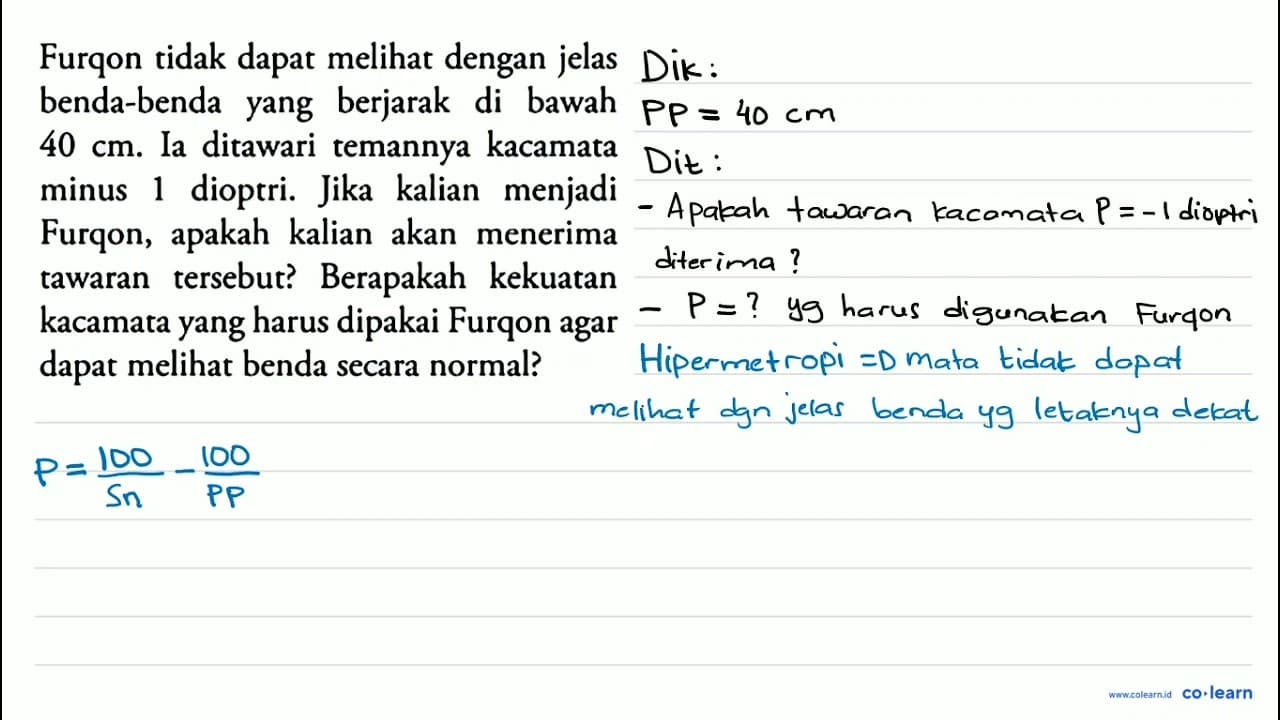 Furqon tidak dapat melihat dengan jelas
benda-benda yang berjarak di bawah
40 cm. Ia ditawari temannya kacamata
minus 1 dioptri. Jika kalian menjadi
Furqon, apakah kalian akan menerima
tawaran tersebut? Berapakah kekuatan
kacamata yang harus dipakai Furqon agar
dapat melihat benda secara normal?
Dik:
PP = 40 cm
Dit:
- Apakah tawaran kacamata P = -1 dioptri
diterima?
- P = ? yg harus digunakan Furqon
Hipermetropi => mata tidak dapat
melihat dgn jelas benda yg letaknya dekat
P = 100/Sn - 100/PP
www.colearn.id co·learn